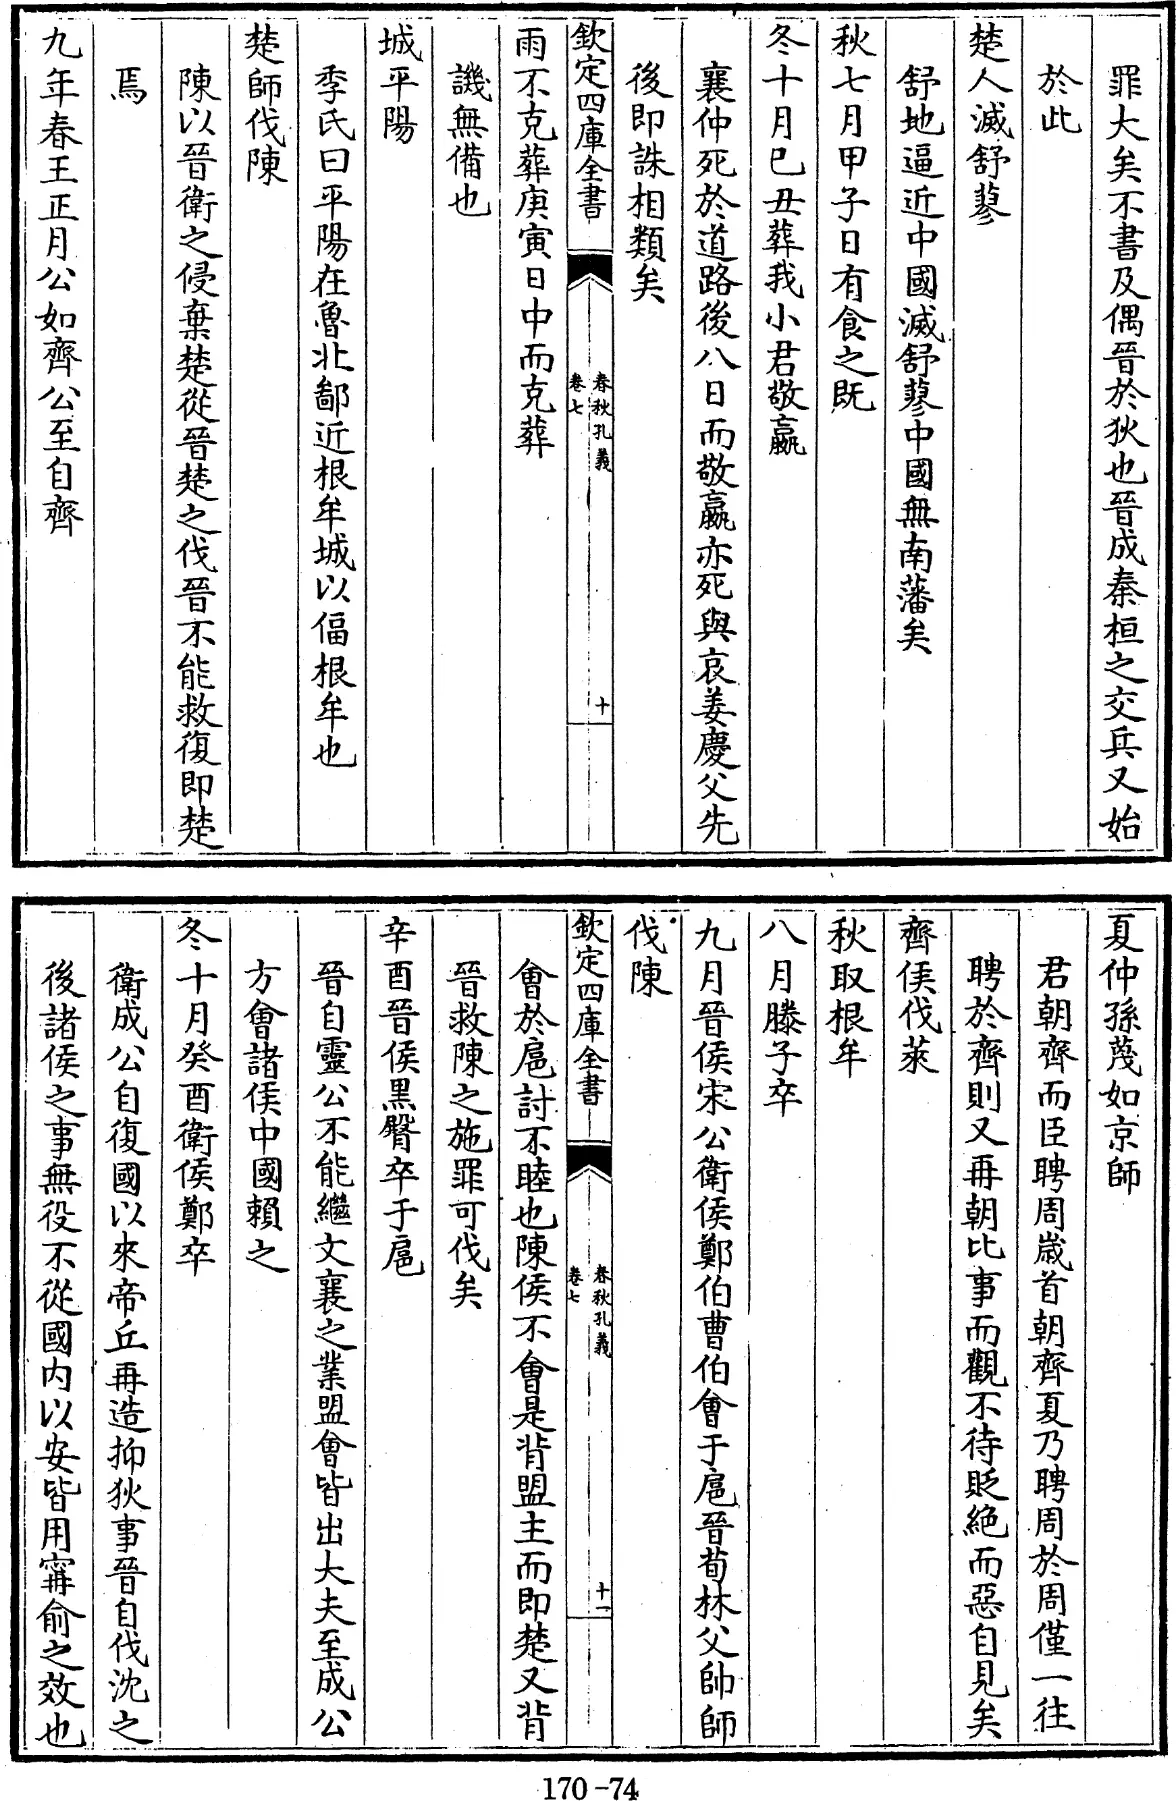 罪大矣不書及偶晉於狄也晉成秦桓之交兵又始
於此
楚人滅舒蓼
舒地逼近中國滅舒蓼中國無南藩矣
秋七月甲子日有食之既
冬十月己丑葬我小君敬嬴
襄仲死於道路後八日而敬嬴亦死與哀姜慶父先
後即誅相類矣
欽定四庫全書
春秋孔義
卷七
十
雨不克葬庚寅日中而克葬
譏無備也
城平陽
季氏曰平陽在魯北鄙近根牟城以偪根牟也
楚師伐陳
陳以晉衛之侵棄楚從晉楚之伐晉不能救復即楚
焉
九年春王正月公如齊公至自齊
夏仲孫蔑如京師
君朝齊而臣聘周歲首朝齊夏乃聘周於周僅一往
聘於齊則又再朝比事而觀不待貶絕而惡自見矣
齊侯伐萊
秋取根牟
八月滕子卒
九月晉侯宋公衛侯鄭伯曹伯會于扈晉荀林父帥師
伐陳
欽定四庫全書
春秋孔義
卷七
十一
會於扈討不睦也陳侯不會是背盟主而即楚又背
晉救陳之施罪可伐矣
辛酉晉侯黑臀卒于扈
晉自靈公不能繼文襄之業盟會皆出大夫至成公
方會諸侯中國賴之
冬十月癸酉衛侯鄭卒
衛成公自復國以來帝丘再造抑狄事晉自伐沈之
後諸侯之事無役不從國内以安皆用甯俞之效也
170-74